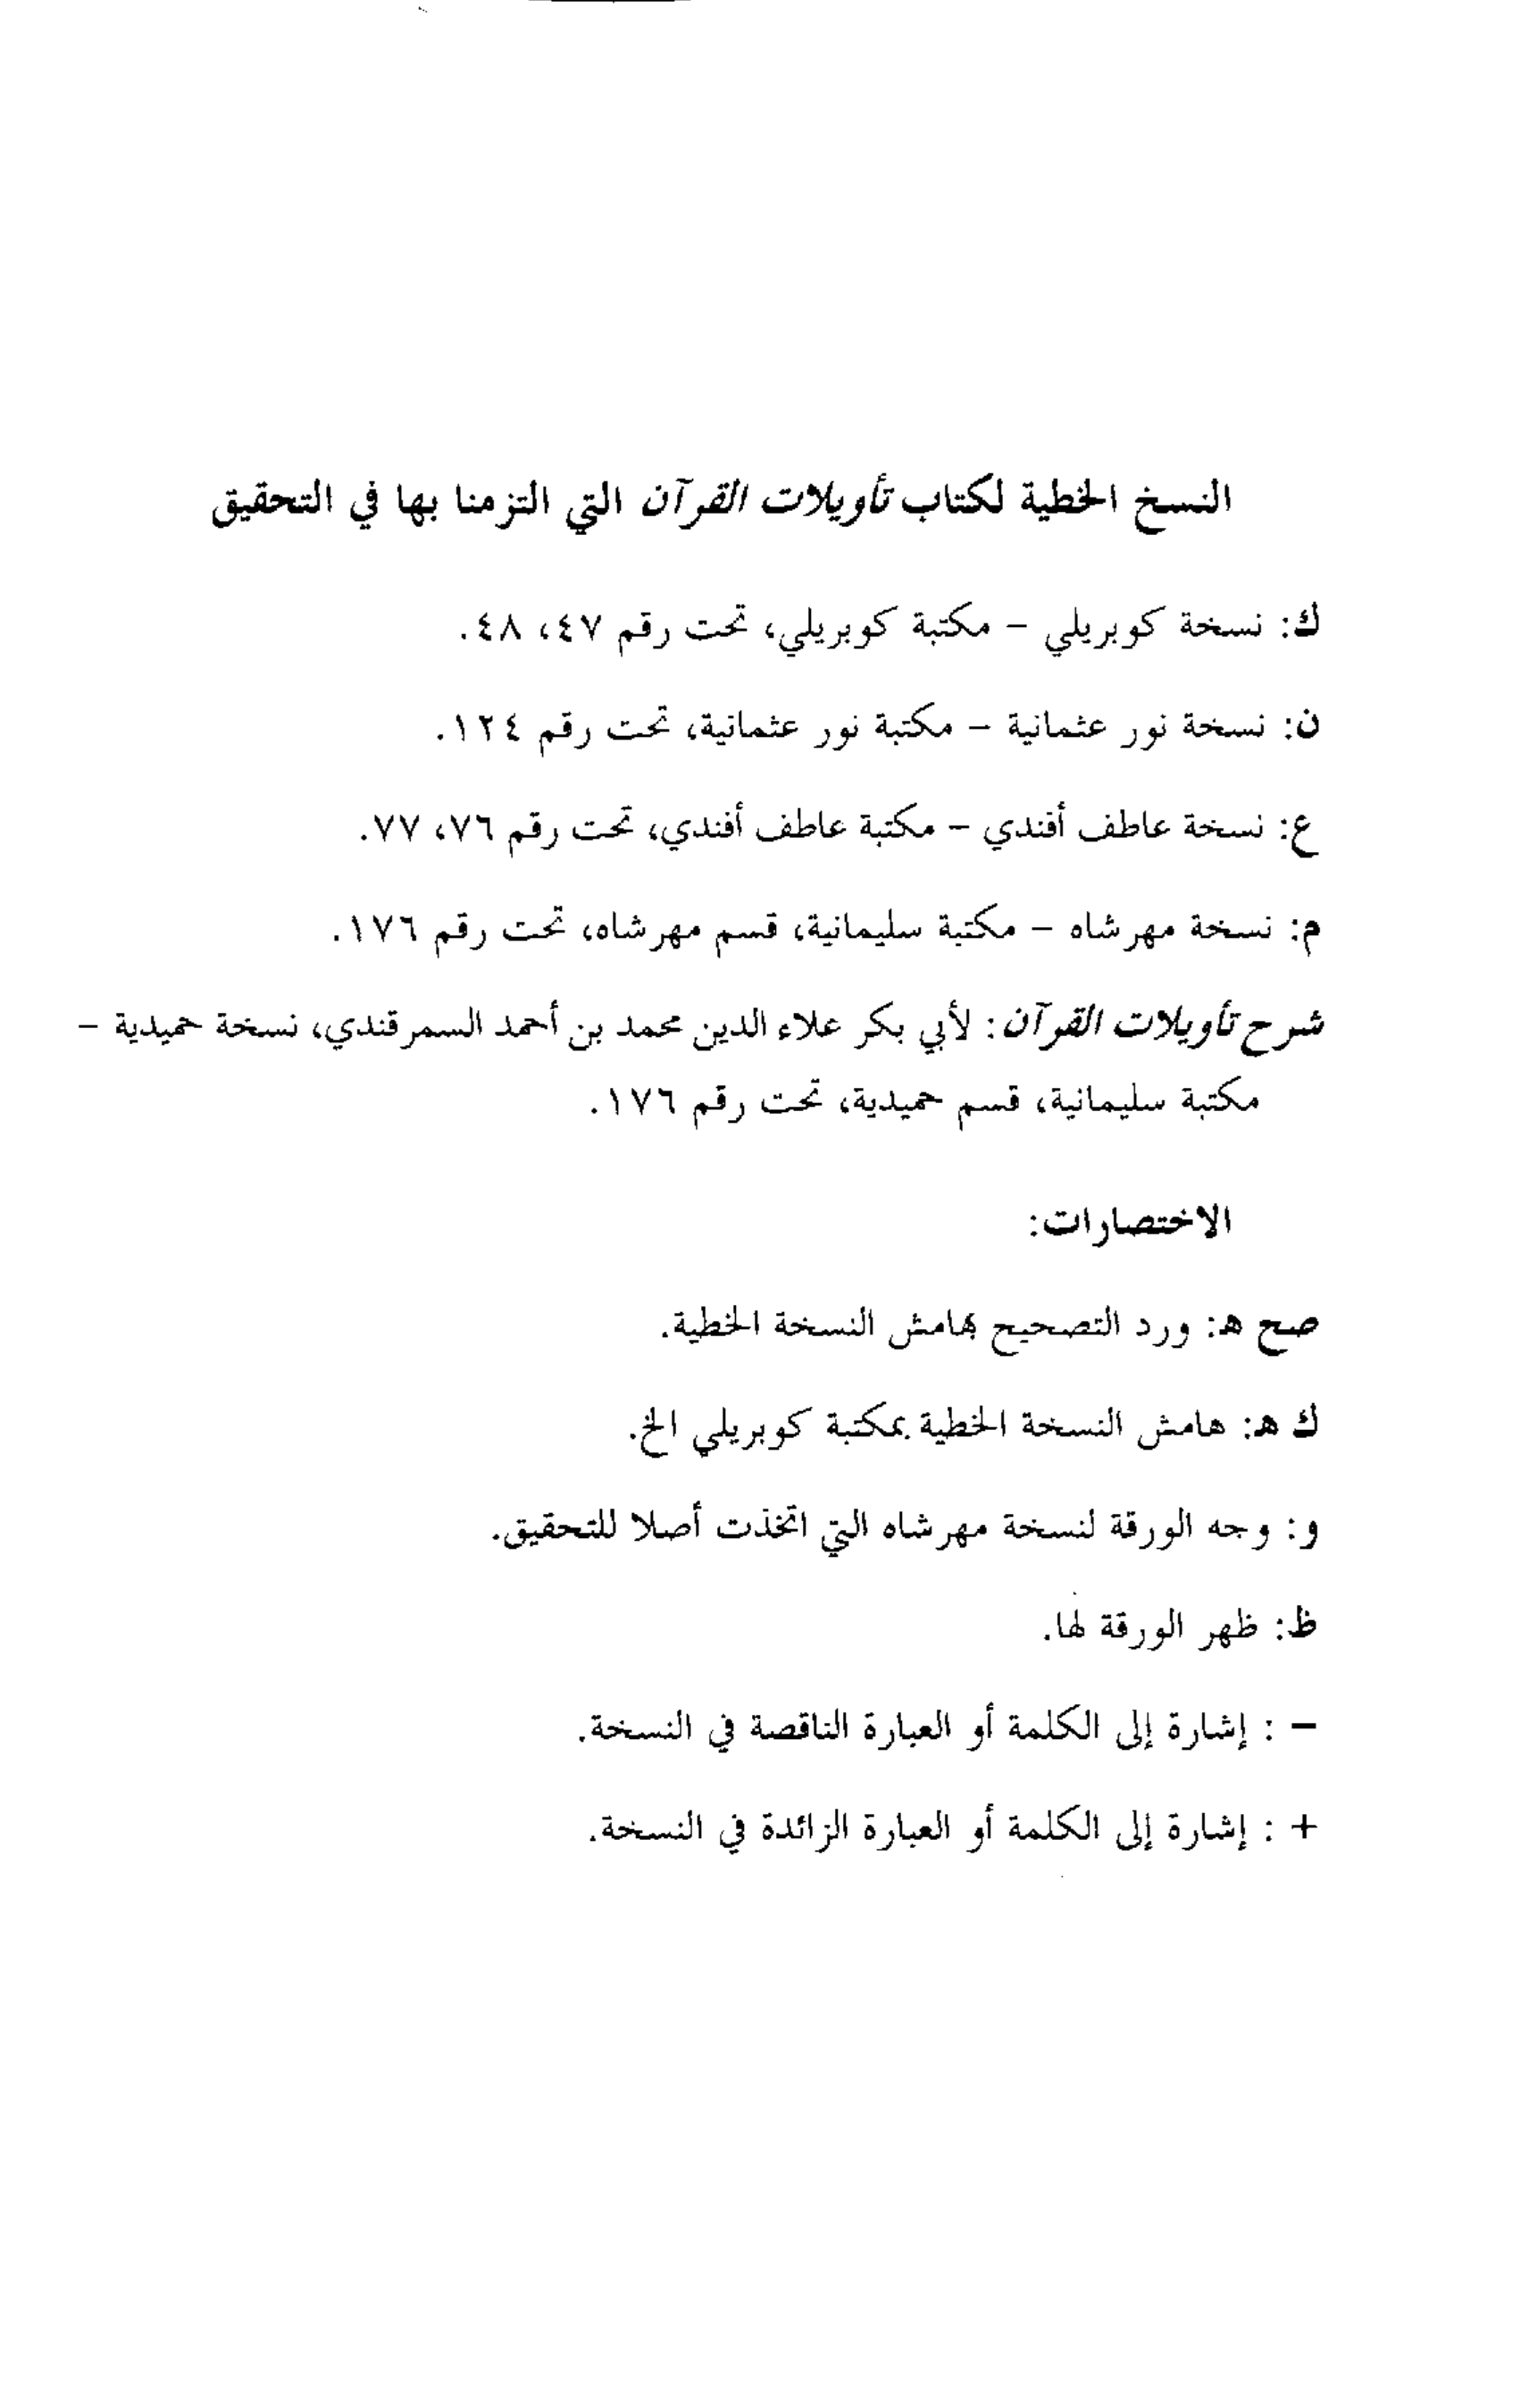 النسخ الخطية لكتاب تأويلات القرآن التي التزمنا بها في التحقيق
ك: نسخة كوبريلي – مكتبة كوبريلي، تحت رقم ٤٧، ٤٨.
ن: نسخة نور عثمانية – مكتبة نور عثمانية، تحت رقم ١٢٤.
ع: نسخة عاطف أفندي – مكتبة عاطف أفندي، تحت رقم ٧٦، ٧٧.
م: نسخة مهرشاه – مكتبة سليمانية، قسم مهرشاه، تحت رقم ١٧٦.
شرح تأويلات القرآن: لأبي بكر علاء الدين محمد بن أحمد السمرقندي، نسخة حميدية –
مكتبة سليمانية، قسم حميدية، تحت رقم ١٧٦.
الاختصارات:
صح ه: ورد التصحيح بهامش النسخة الخطية.
ك ه: هامش النسخة الخطية بمكتبة كوبريلي الخ.
و: وجه الورقة لنسخة مهرشاه التي اتخذت أصلا للتحقيق.
ظ: ظهر الورقة لها.
– : إشارة إلى الكلمة أو العبارة الناقصة في النسخة.
+ : إشارة إلى الكلمة أو العبارة الزائدة في النسخة.